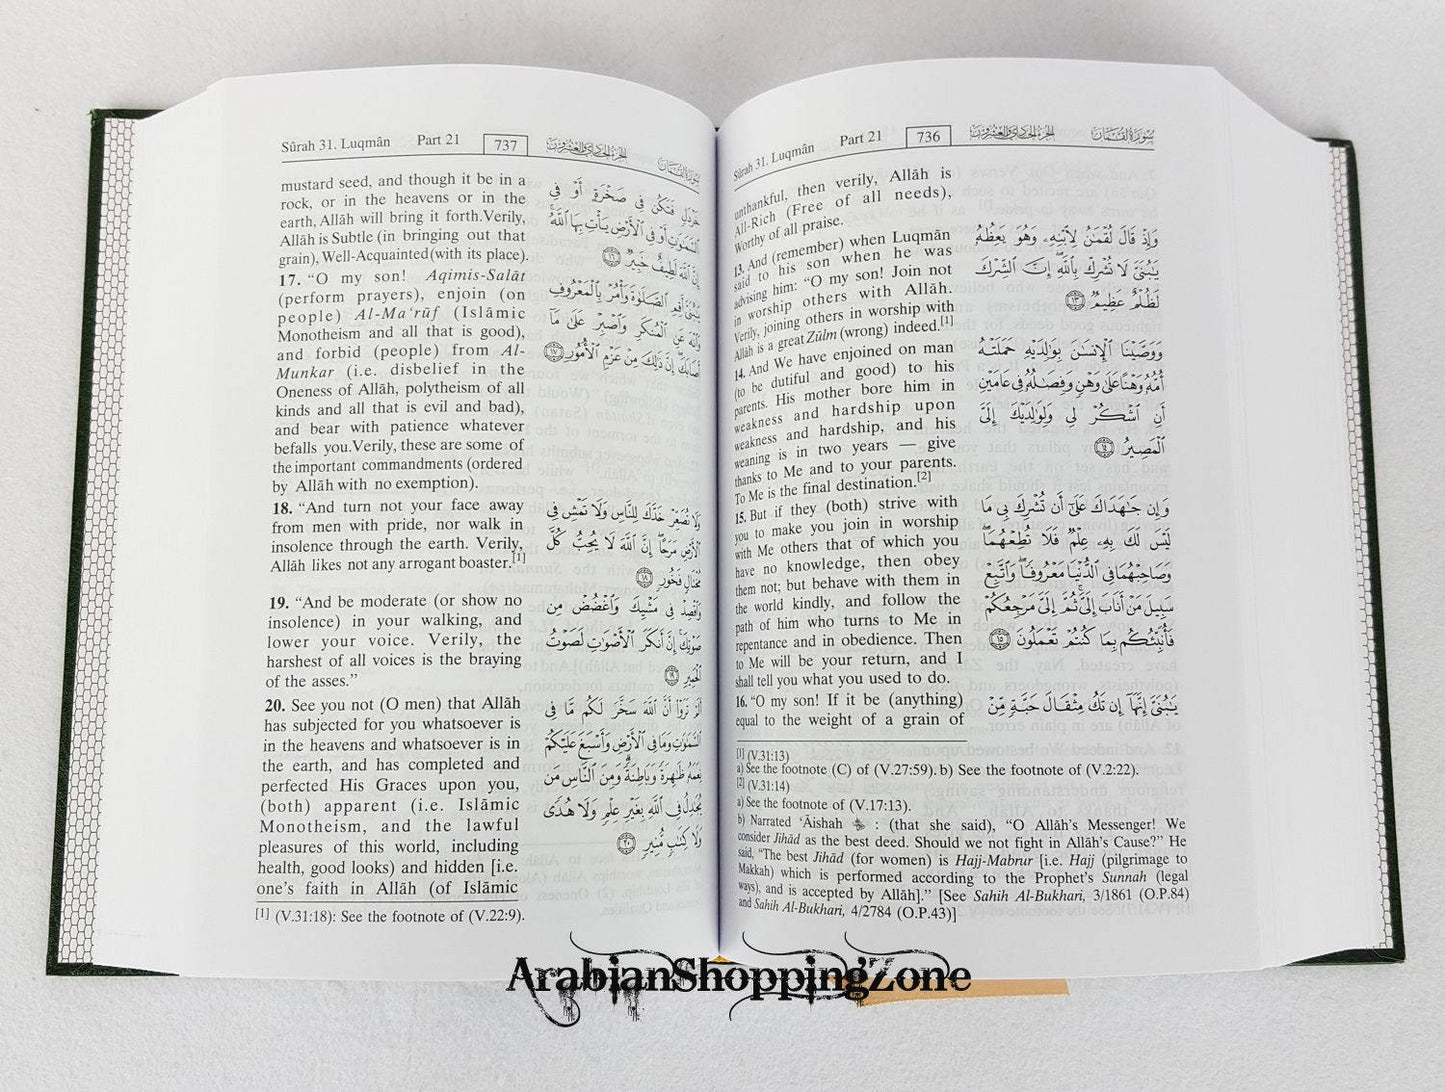 Sûrah 31. Luqmân Part 21 736 الجزء الحادي والعشرون سورة لقمان
unthankful, then verily, Allâh is
All-Rich (Free of all needs),
Worthy of all praise.
13. And (remember) when Luqmân
said to his son when he was
advising him: “O my son! Join not
in worship others with Allâh.
Verily, joining others in worship with
Allâh is a great Zûlm (wrong) indeed.[1]
14. And We have enjoined on man
(to be dutiful and good) to his
parents. His mother bore him in
weakness and hardship upon
weakness and hardship, and his
weaning is in two years — give
thanks to Me and to your parents.
To Me is the final destination.[2]
15. But if they (both) strive with
you to make you join in worship
with Me others that of which you
have no knowledge, then obey
them not; but behave with them in
the world kindly, and follow the
path of him who turns to Me in
repentance and in obedience. Then
to Me will be your return, and I
shall tell you what you used to do.
16. “O my son! If it be (anything)
equal to the weight of a grain of
وَإِذْ قَالَ لُقْمَٰنُ لِٱبْنِهِۦ وَهُوَ يَعِظُهُۥ
يَٰبُنَىَّ لَا تُشْرِكْ بِٱللَّهِ إِنَّ ٱلشِّرْكَ
لَظُلْمٌ عَظِيمٌ ١٣
وَوَصَّيْنَا ٱلْإِنسَٰنَ بِوَٰلِدَيْهِ حَمَلَتْهُ
أُمُّهُۥ وَهْنًا عَلَىٰ وَهْنٍ وَفِصَٰلُهُۥ فِى عَامَيْنِ
أَنِ ٱشْكُرْ لِى وَلِوَٰلِدَيْكَ إِلَىَّ
ٱلْمَصِيرُ ١٤
وَإِن جَٰهَدَاكَ عَلَىٰٓ أَن تُشْرِكَ بِى مَا
لَيْسَ لَكَ بِهِۦ عِلْمٌ فَلَا تُطِعْهُمَا
وَصَاحِبْهُمَا فِى ٱلدُّنْيَا مَعْرُوفًا وَٱتَّبِعْ
سَبِيلَ مَنْ أَنَابَ إِلَىَّ ثُمَّ إِلَىَّ مَرْجِعُكُمْ
فَأُنَبِّئُكُم بِمَا كُنتُمْ تَعْمَلُونَ ١٥
يَٰبُنَىَّ إِنَّهَآ إِن تَكُ مِثْقَالَ حَبَّةٍ مِّنْ
[1] (V.31:13)
a) See the footnote (C) of (V.27:59). b) See the footnote of (V.2:22).
[2] (V.31:14)
a) See the footnote of (V.17:13).
b) Narrated ‘Āishah : (that she said), “O Allâh’s Messenger! We
consider Jihâd as the best deed. Should we not fight in Allâh’s Cause?” He
said, “The best Jihâd (for women) is Hajj-Mabrur [i.e. Hajj (pilgrimage to
Makkah) which is performed according to the Prophet’s Sunnah (legal
ways), and is accepted by Allâh].” [See Sahih Al-Bukhari, 3/1861 (O.P.84)
and Sahih Al-Bukhari, 4/2784 (O.P.43)]
Sûrah 31. Luqmân Part 21 737 الجزء الحادي والعشرون سورة لقمان
mustard seed, and though it be in a
rock, or in the heavens or in the
earth, Allâh will bring it forth.Verily,
Allâh is Subtle (in bringing out that
grain), Well-Acquainted (with its place).
17. “O my son! Aqimis-Salât
(perform prayers), enjoin (on
people) Al-Ma‘rūf (Islâmic
Monotheism and all that is good),
and forbid (people) from Al-
Munkar (i.e. disbelief in the
Oneness of Allâh, polytheism of all
kinds and all that is evil and bad),
and bear with patience whatever
befalls you.Verily, these are some of
the important commandments (ordered
by Allâh with no exemption).
18. “And turn not your face away
from men with pride, nor walk in
insolence through the earth. Verily,
Allâh likes not any arrogant boaster.[1]
19. “And be moderate (or show no
insolence) in your walking, and
lower your voice. Verily, the
harshest of all voices is the braying
of the asses.”
20. See you not (O men) that Allâh
has subjected for you whatsoever is
in the heavens and whatsoever is in
the earth, and has completed and
perfected His Graces upon you,
(both) apparent (i.e. Islâmic
Monotheism, and the lawful
pleasures of this world, including
health, good looks) and hidden [i.e.
one’s faith in Allâh (of Islâmic
خَرْدَلٍ فَتَكُن فِى صَخْرَةٍ أَوْ فِى
ٱلسَّمَٰوَٰتِ أَوْ فِى ٱلْأَرْضِ يَأْتِ بِهَا ٱللَّهُ
إِنَّ ٱللَّهَ لَطِيفٌ خَبِيرٌ ١٦
يَٰبُنَىَّ أَقِمِ ٱلصَّلَوٰةَ وَأْمُرْ بِٱلْمَعْرُوفِ
وَٱنْهَ عَنِ ٱلْمُنكَرِ وَٱصْبِرْ عَلَىٰ مَآ
أَصَابَكَ إِنَّ ذَٰلِكَ مِنْ عَزْمِ ٱلْأُمُورِ ١٧
وَلَا تُصَعِّرْ خَدَّكَ لِلنَّاسِ وَلَا تَمْشِ فِى
ٱلْأَرْضِ مَرَحًا إِنَّ ٱللَّهَ لَا يُحِبُّ كُلَّ
مُخْتَالٍ فَخُورٍ ١٨
وَٱقْصِدْ فِى مَشْيِكَ وَٱغْضُضْ مِن
صَوْتِكَ إِنَّ أَنكَرَ ٱلْأَصْوَٰتِ لَصَوْتُ
ٱلْحَمِيرِ ١٩
أَلَمْ تَرَوْا۟ أَنَّ ٱللَّهَ سَخَّرَ لَكُم مَّا فِى
ٱلسَّمَٰوَٰتِ وَمَا فِى ٱلْأَرْضِ وَأَسْبَغَ عَلَيْكُمْ
نِعَمَهُۥ ظَٰهِرَةً وَبَاطِنَةً وَمِنَ ٱلنَّاسِ مَن
يُجَٰدِلُ فِى ٱللَّهِ بِغَيْرِ عِلْمٍ وَلَا هُدًى
وَلَا كِتَٰبٍ مُّنِيرٍ ٢٠
[1] (V.31:18): See the footnote of (V.22:9).
ArabianShoppingZone